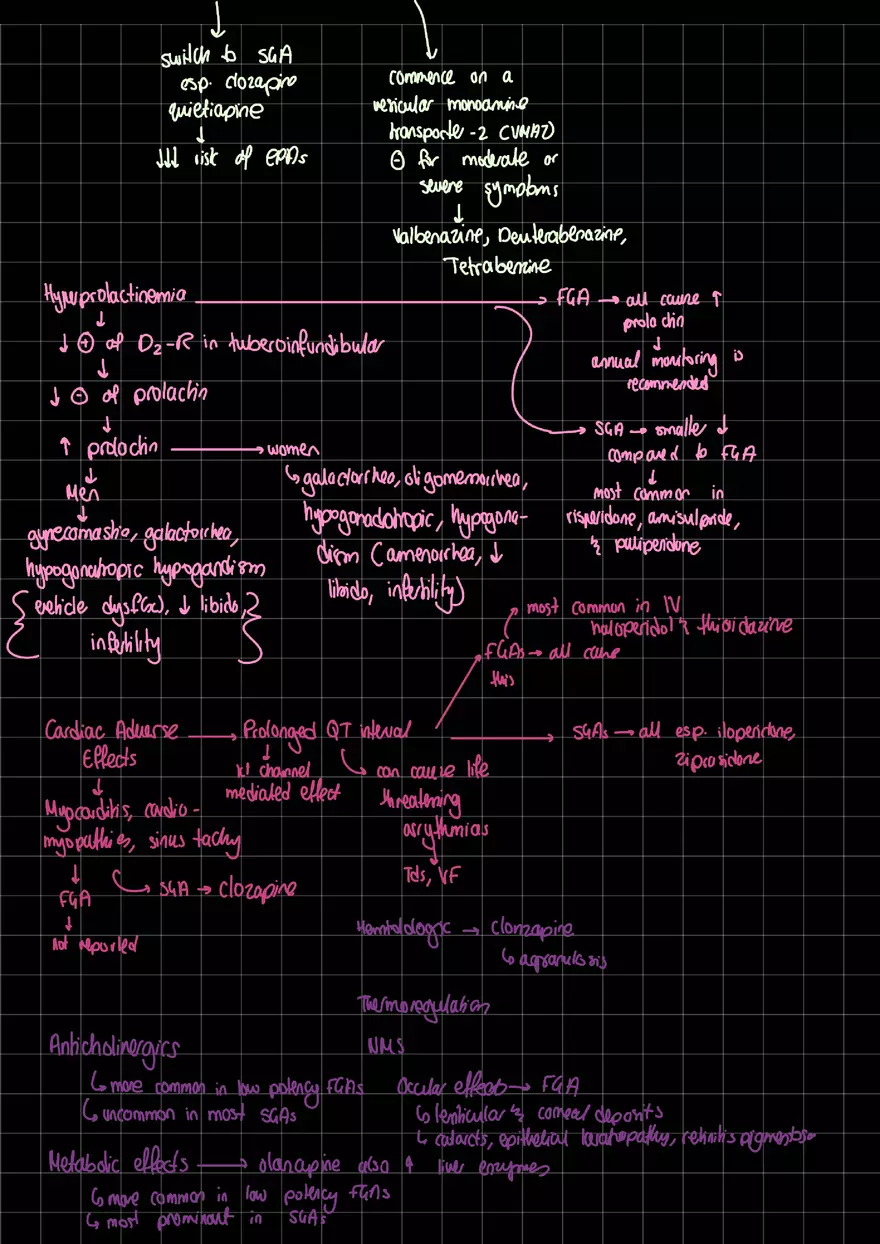 switch to SGA
esp. clozapine
quietiapine
↓
↓↓↓ risk of EPADs
commence on a
vesicular monoamine
transporte-2 (VMAT)
⊖ for moderate or
severe symptoms
↓
Valbenazine, Deuterabenazine,
Tetrabenzine
Hyperprolactinemia → FGA → all cause ↑
prolactin
↓
annual monitoring is
recommended
↓
↓ ⊕ of D2-R in tuberoinfundibular
↓
↓ ⊖ of prolactin
↓
SGA → smaller ↓
compared to FGA
↓
most common in
risperidone, amisulpride,
& paliperidone
↑ prolactin → women
↳ galactorrhea, oligomenorrhea,
hypogonadotropic, hypogona-
dism (amenorrhea, ↓
libido, infertility)
↓
Men
↓
gynecomastia, galactorrhea,
hypogonatropic hypogandism
{erectile dysf(x), ↓ libido,
infertility}
most common in IV
haloperidol & thioridazine
FGAs → all cause
this
Cardiac Adverse → Prolonged QT interval → SGAs → all esp. iloperidone,
Effects
ziprasidone
↓
K+ channel
mediated effect
can cause life
threatening
arrythmias
↓
Tds, VF
↓
Myocarditis, cardio-
myopathies, sinus tachy
↓
FGA
↓
not reported
SGA → clozapine
Hematologic → Clonzapine
↳ agranulosis
Thermoregulation
NMS
Anticholinergics
↳ more common in low potency FGAs
↳ uncommon in most SGAs
Occular effects → FGA
↳ lenticular & corneal deposits
↳ cataracts, epithelial keratopathy, retinitis pigmentosa
Metabolic effects → olanzapine also ↑ liver enzymes
↳ more common in low potency FGAs
↳ most prominant in SGAs